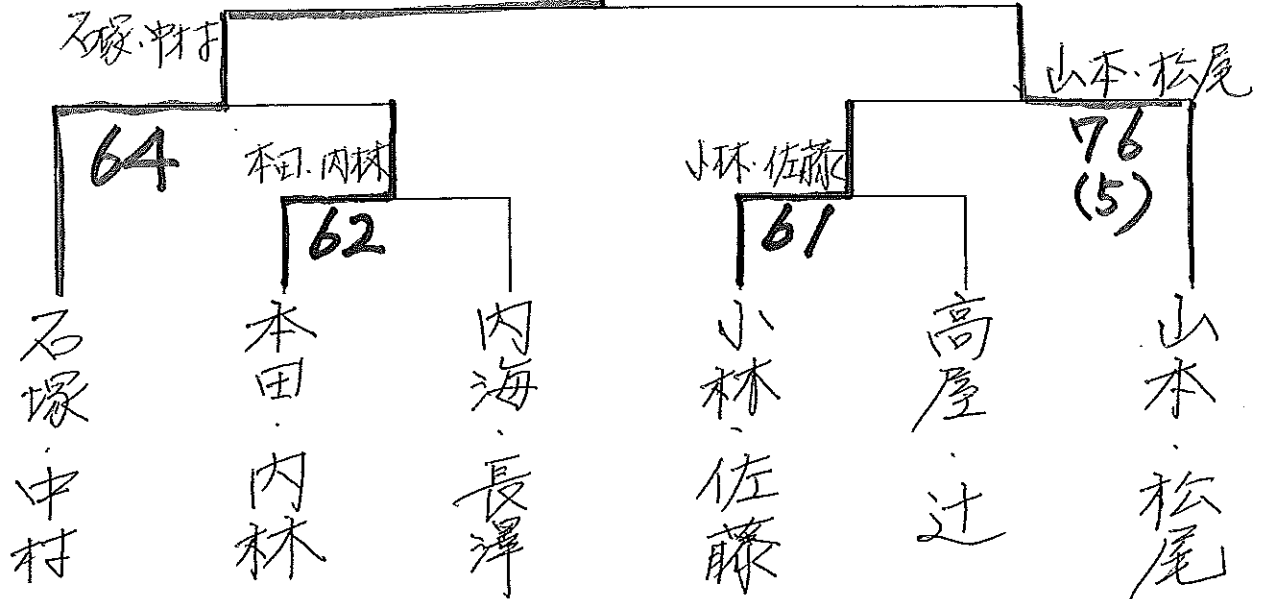 石塚・中村
山本・松尾
64
本田・内林
小林・佐藤
76
(5)
62
61
石塚・中村
本田・内林
内海・長澤
小林・佐藤
高屋・辻
山本・松尾